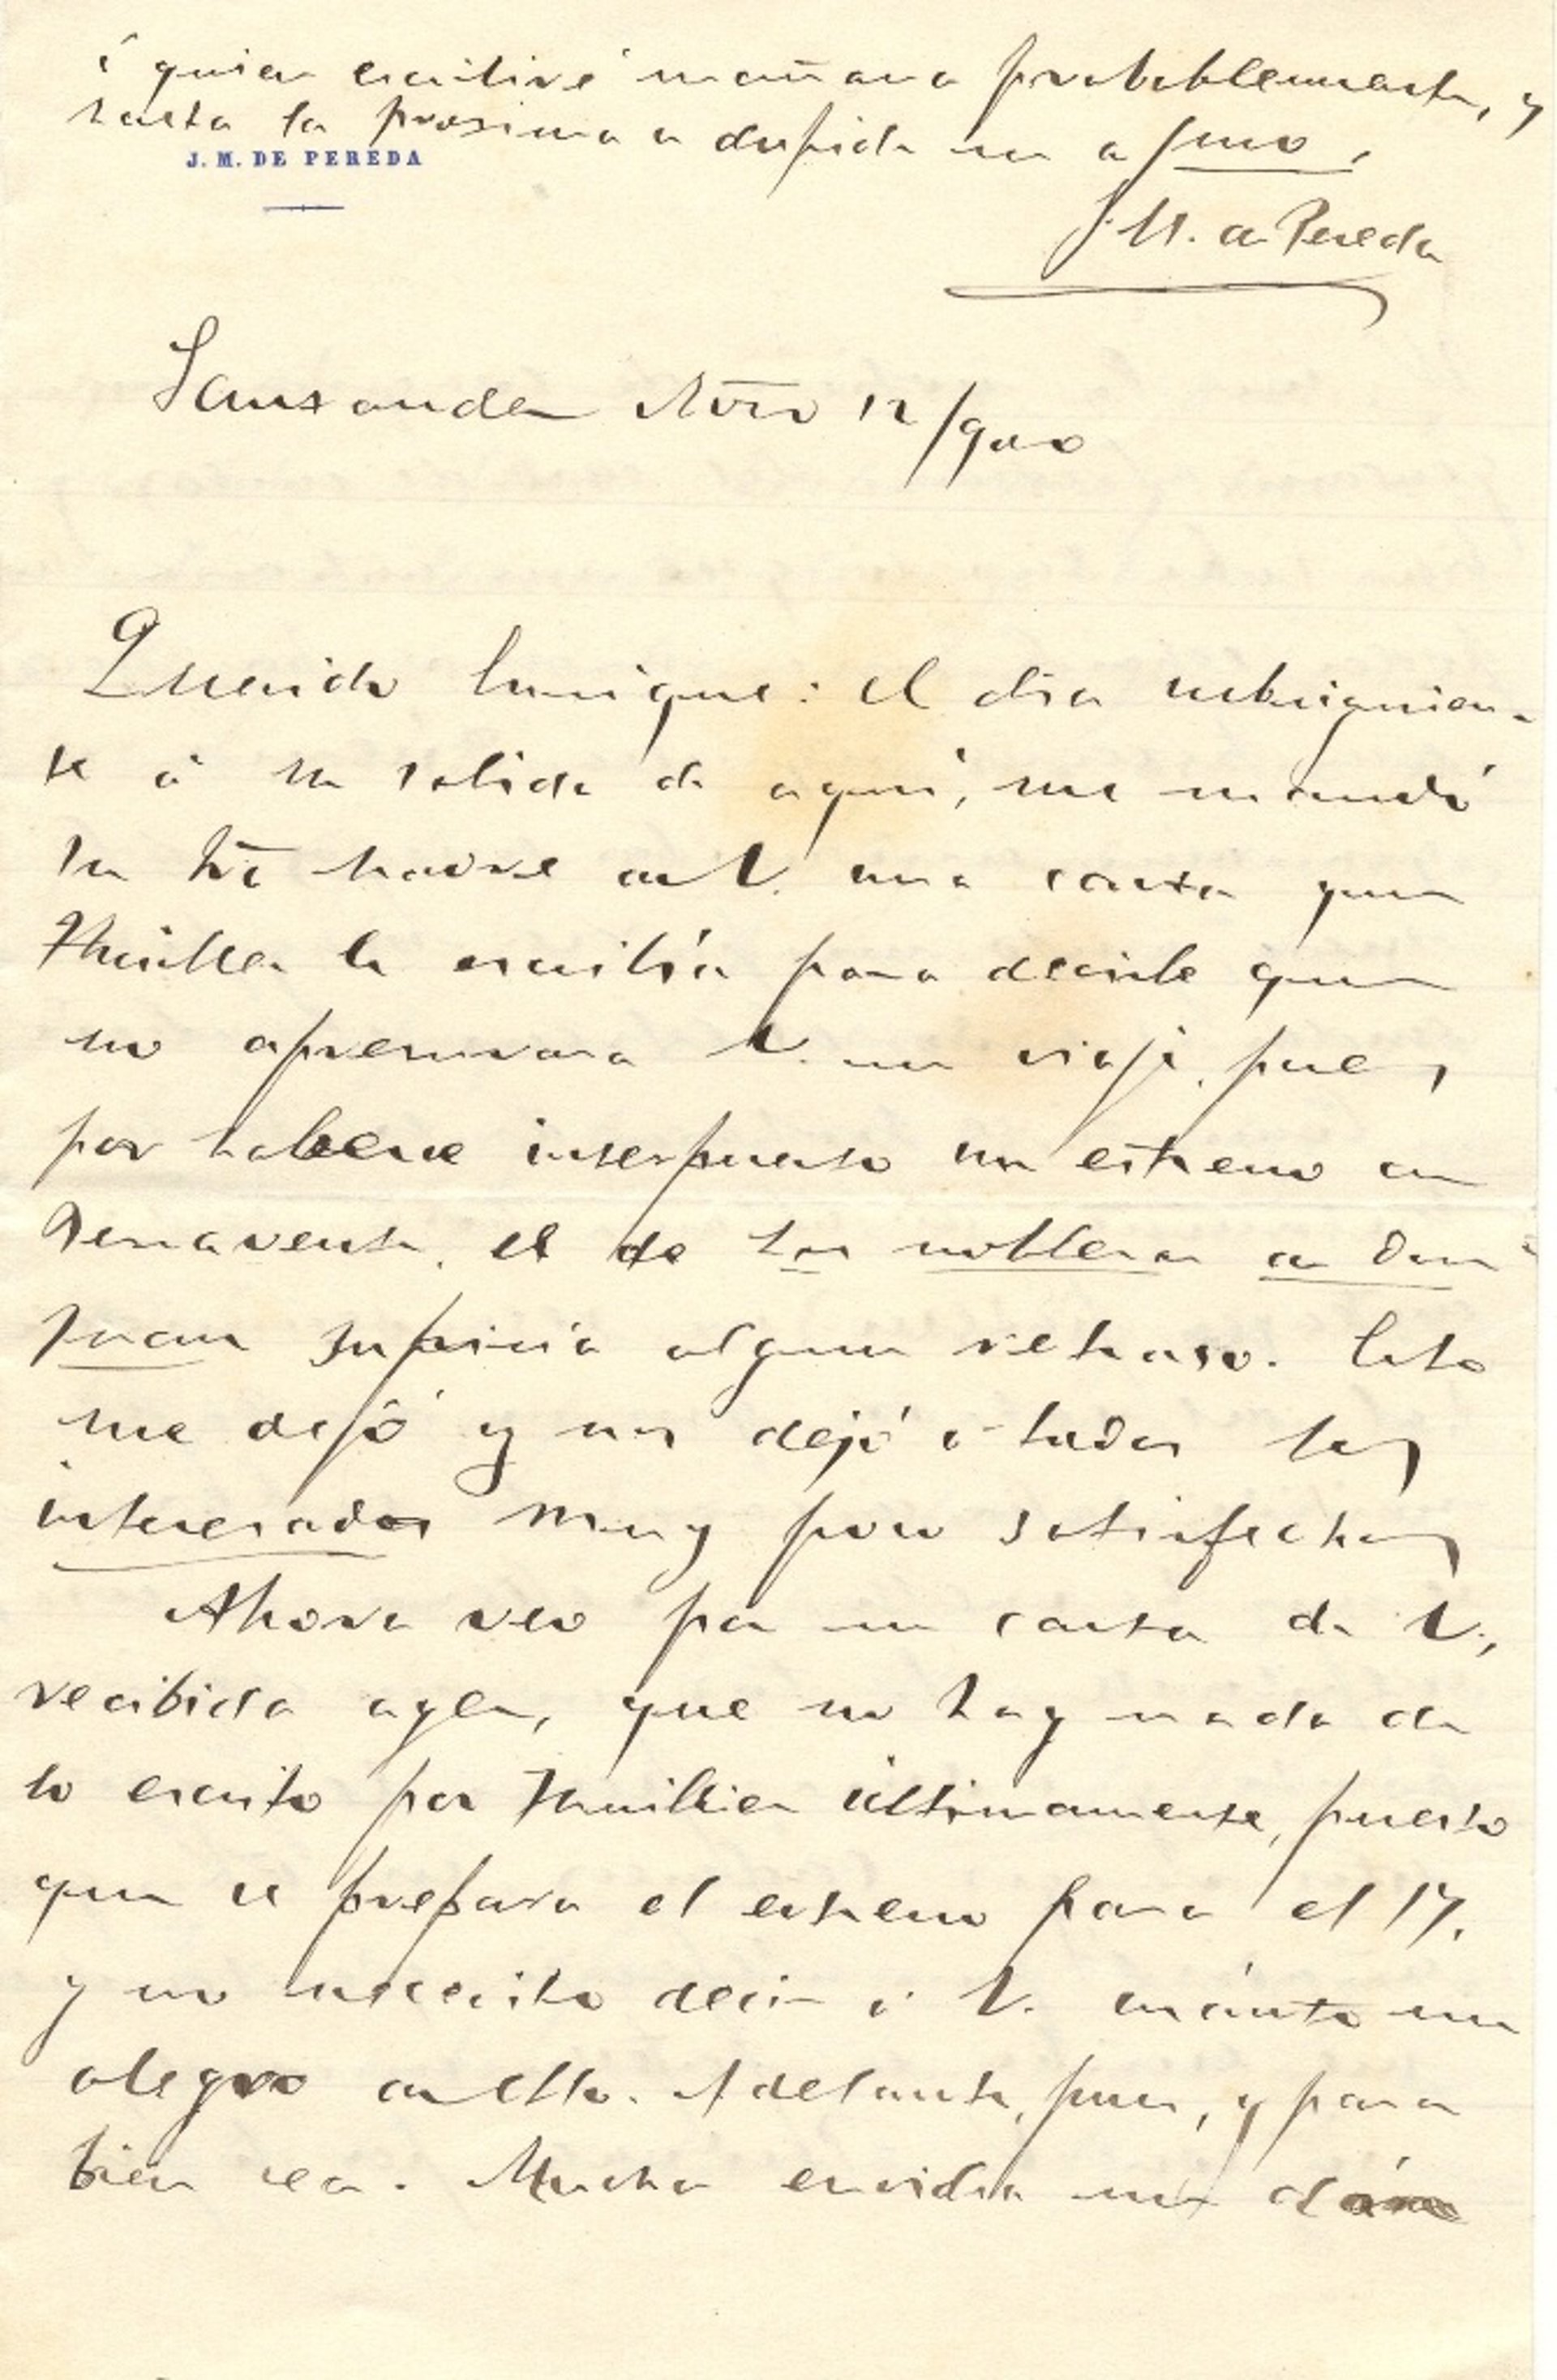 á quien escribiré mañana probablemente, y
hasta la proxima se despide su afmo.
J. M. DE PEREDA
J. M. de Pereda
Santander Nov. 12/900
Querido Enrique: el dia subsiguien-
te á su salida de aqui, me mandó
su madre de V. una carta que
Thuiller le escribía para decirle que
no apresurara V. su viaje, pues,
por haberse interpuesto un estreno de
Benavente, el de La nobleza de Don
Juan sufriría algun retraso. Esto
me dejó y nos dejó á todos los
interesados muy poco satisfechos
Ahora veo por su carta de V.,
recibida ayer, que no hay nada de
lo escrito por Thuillier últimamente, puesto
que se prepara el estreno para el 17.
y no necesito decir á V. cuánto me
alegro de ello. Adelante, pues, y para
bien sea. Mucha envidia me dá